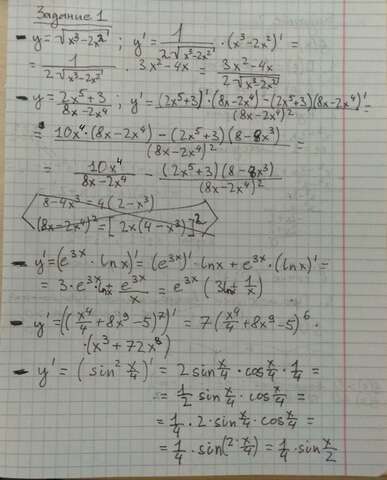 Задание 1
- y = √(x³-2x²) ; y' = 1/(2√(x³-2x²)) · (x³-2x²)' =
= 1/(2√(x³-2x²)) · 3x²-4x = (3x²-4x)/(2√(x³-2x²))
- y = (2x⁵+3)/(8x-2x⁴) ; y' = ((2x⁵+3)'(8x-2x⁴)-(2x⁵+3)(8x-2x⁴)')/(8x-2x⁴)² =
= (10x⁴·(8x-2x⁴)-(2x⁵+3)(8-8x³))/(8x-2x⁴)² =
= 10x⁴/(8x-2x⁴) - (2x⁵+3)(8-8x³)/(8x-2x⁴)²
8-4x³=4(2-x³)
(8x-2x⁴)²=[2x(4-x³)]²
- y'=(e³ˣ·lnx)'=(e³ˣ)'·lnx+e³ˣ·(lnx)'=
= 3·e³ˣ·ln + e³ˣ/x = e³ˣ(3ln + 1/x)
- y'=((x⁴/4+8x⁹-5)⁷)'=7(x⁴/4+8x⁹-5)⁶·
·(x³+72x⁸)
- y'=(sin² x/4)'=2sin x/4·cos x/4·1/4=
= 1/2 sin x/4·cos x/4=
= 1/4·2·sin x/4·cos x/4=
= 1/4·sin(2·x/4)=1/4·sin x/2